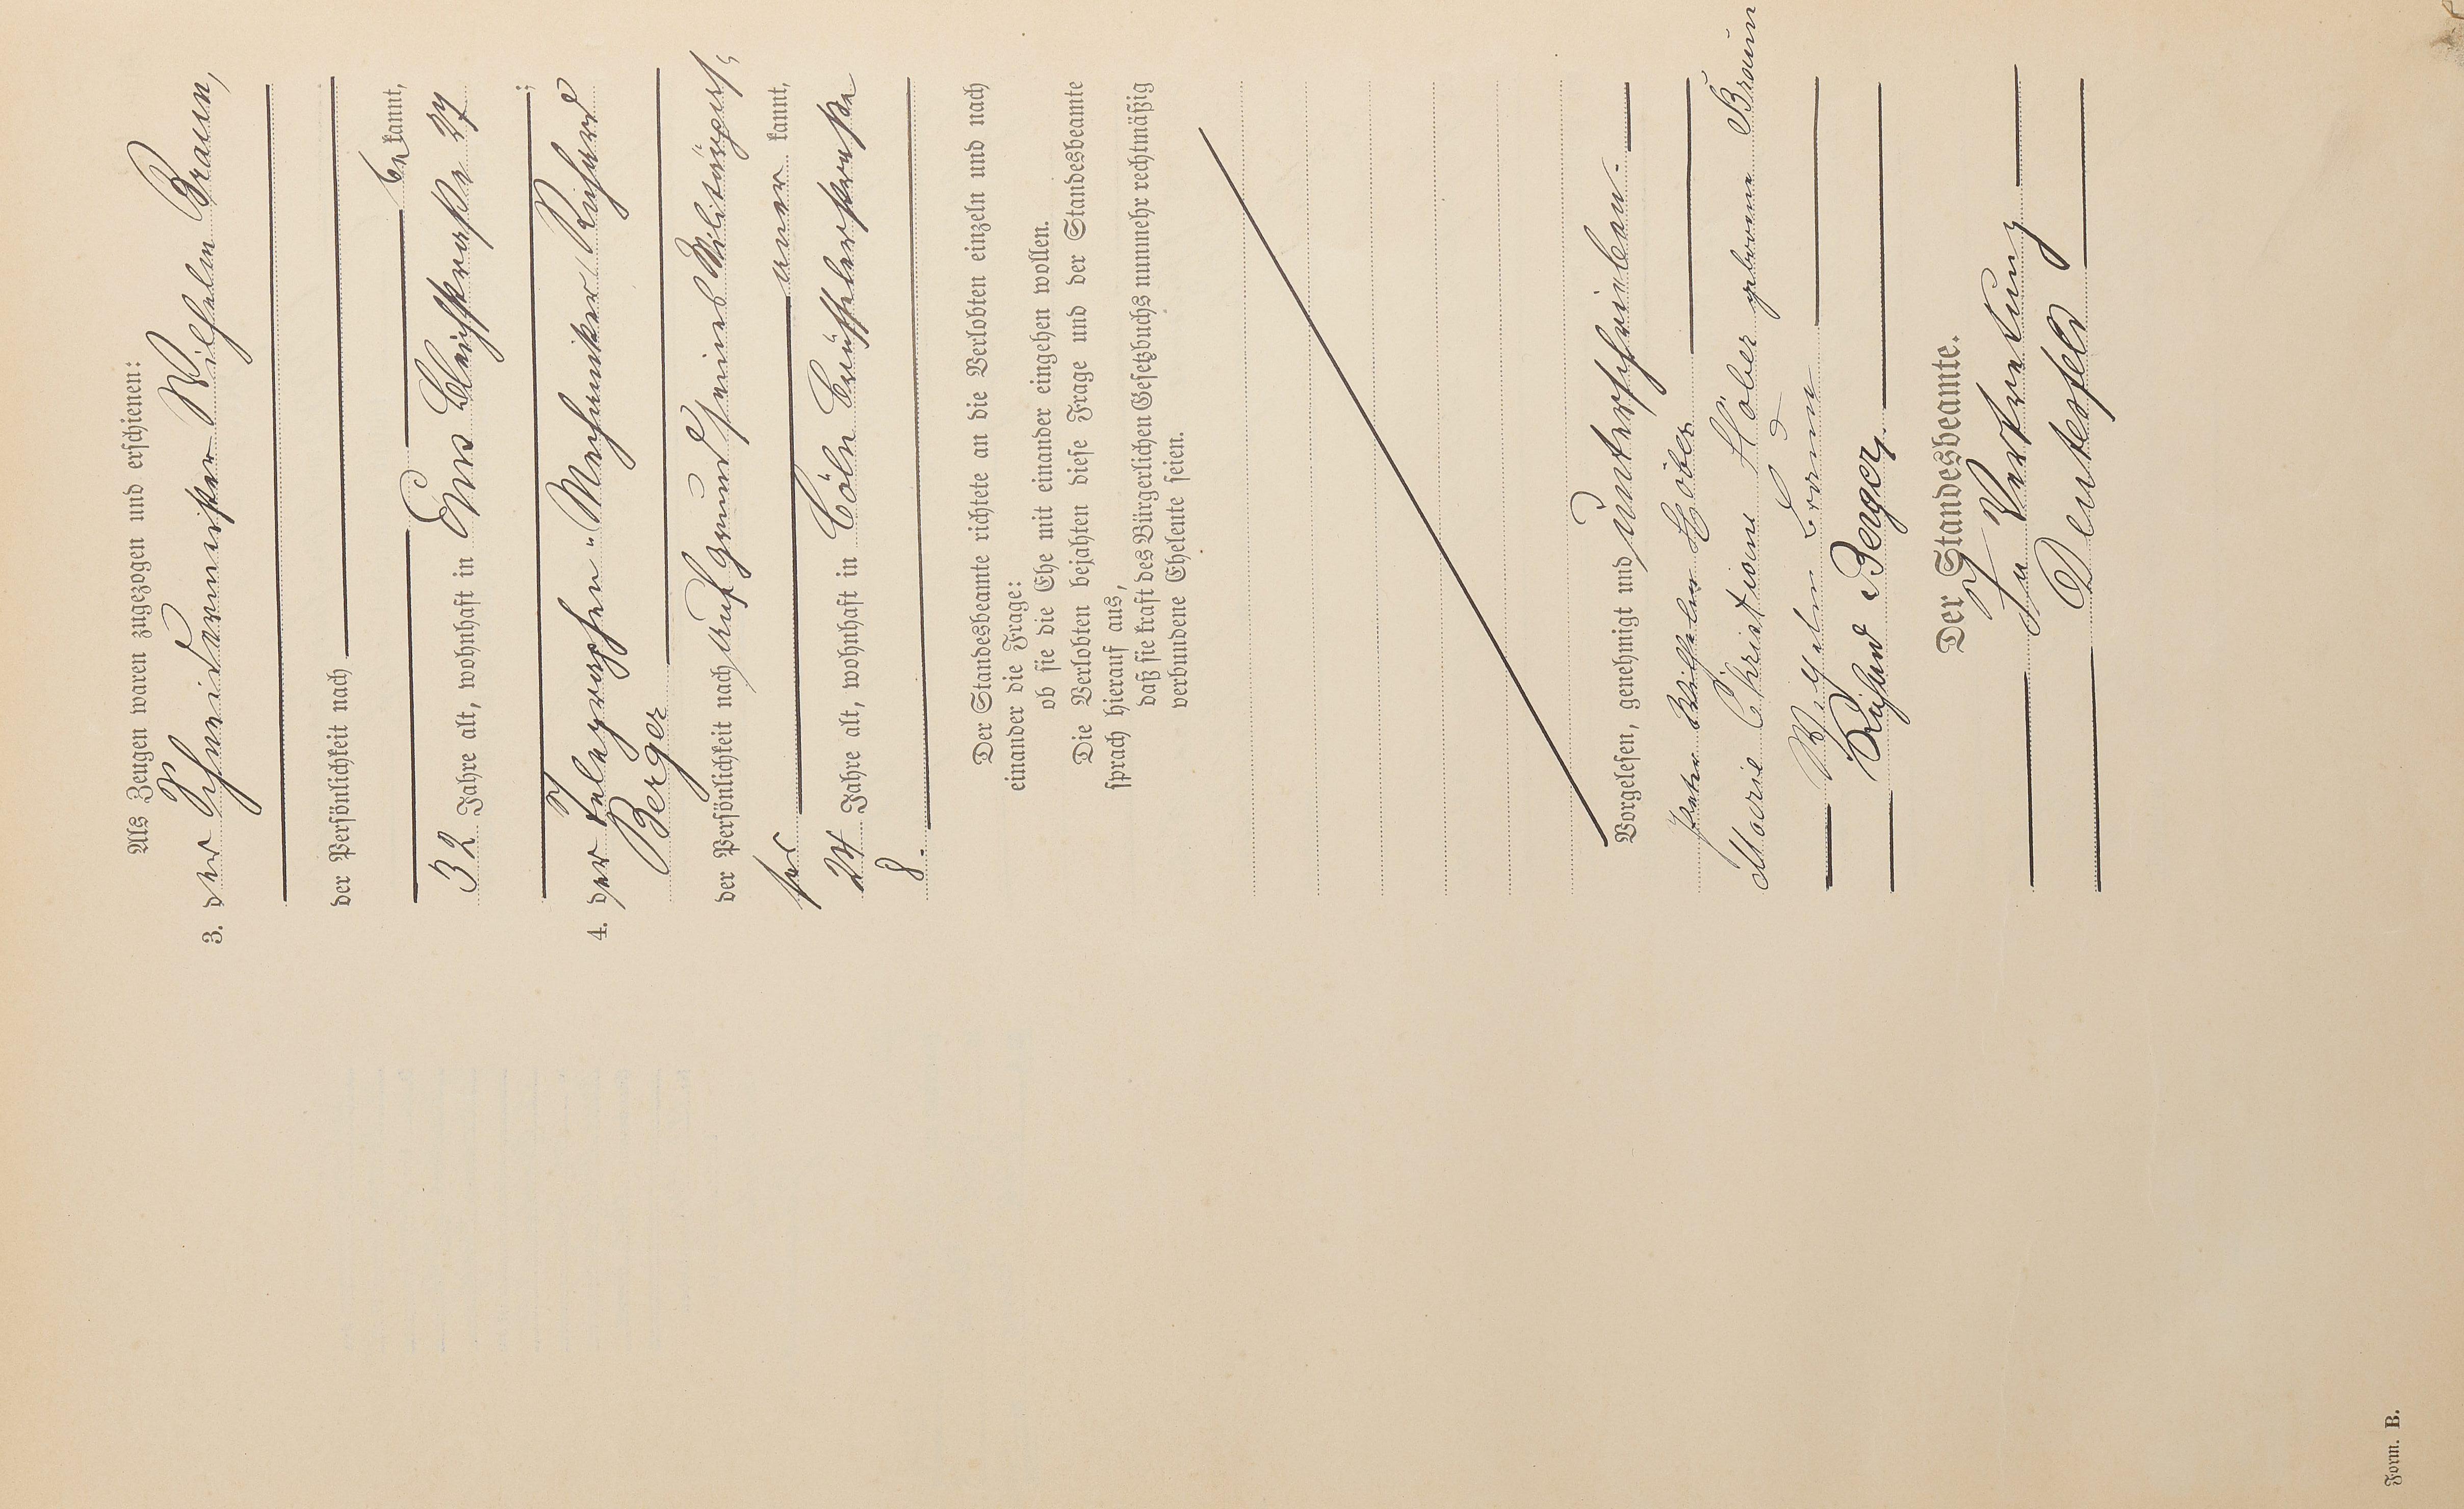 Als Zeugen waren zugezogen und erschienen:
3. der Schneidermeister Wilhelm Braun,
der Persönlichkeit nach
be kannt,
32 Jahre alt, wohnhaft in Ems Bleichstraße 27
;
4. der Telegraphen-Mechaniker Richard
Berger
der Persönlichkeit nach auf Grund seines Militärpas-
ses aner kannt,
24 Jahre alt, wohnhaft in Cöln Brüsselerstraße
8.
Der Standesbeamte richtete an die Verlobten einzeln und nach
einander die Frage:
ob sie die Ehe mit einander eingehen wollen.
Die Verlobten bejahten diese Frage und der Standesbeamte
sprach hierauf aus,
daß sie kraft des Bürgerlichen Gesetzbuchs nunmehr rechtmäßig
verbundene Eheleute seien.
Vorgelesen, genehmigt und unterschrieben.
Peter Wilhelm Höber
Marie Christiane Höber geborene Braun
Wilhelm Braun
Richard Berger
Der Standesbeamte.
In Vertretung
Deutesfeld
Form. B.